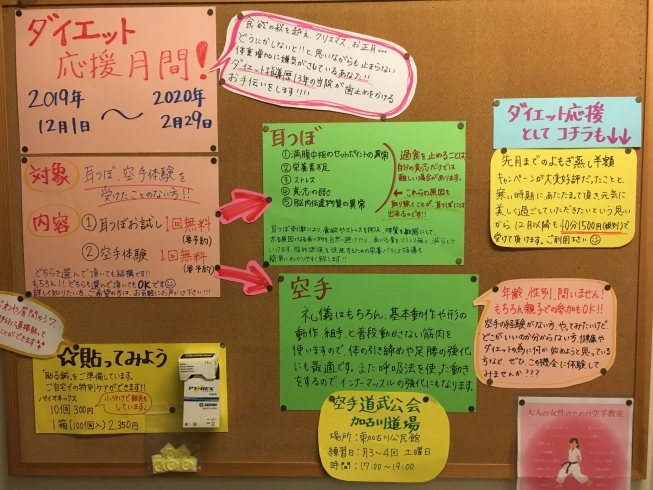 ダイエット
応援月間!
2019年
12月1日 〜 2020年
2月29日
食欲の秋を超え、クリスマス、お正月…
どうにかしないと!!と思いながらも止まらない
体重増加に嫌気がさしているあなた!!
ダイエット指導歴13年の当院が歯止めをかける
お手伝いをします!!!!
対象
耳つぼ、空手体験を
受けたことのない方!!
内容
①耳つぼお試し1回無料
(要予約)
②空手体験 1回無料
(要予約)
どちらを選んで頂いても結構です!!
もちろん!!どちらも選んで頂いてもOKです
詳しく知りたい方、ご希望の方は、お気軽にお声がけ下さい!!!
耳つぼ
①満腹中枢のセットポイントの異常
②栄養素不足
③ストレス
④意志の弱さ
⑤脳内伝達物質の異常
過食を止めることは、
自分の意志だけでは
難しい場合があります。
← これらの原因を
取り除くことが、耳つぼには
出来るのです!!
耳つぼ刺激により、食欲やストレスを抑え、味覚を敏感にして
簡単にわかりやすく話します!!
ダイエット応援
として コチラも↓↓
先月までのよもぎ蒸し半額
キャンペーンが大変好評だったことと、
寒い時期にあたたまって頂き元気に
美しく過ごしていただきたいという思い
から、12月以降も40分1500円(税別)で
受けて頂けます。ご利用下さい☺
空手
礼儀はもちろん、基本動作や形の
動作、組手、と普段動かさない筋肉を
使いますので、体の引き締めや足腰の強化
にも最適です。また呼吸法を使った動き
をするので、インナーマッスルの強化にもなります。
年齢、性別、問いません!
もちろん親子での参加もOK!!
空手の経験がない方、やってみたいけど、
どこがいいのか分からない方、健康や
ダイエットの為に何か始めようと思っている
方など、ぜひ、この機会に体験して
みませんか???
☆貼ってみよう
「貼る鍼」をご準備しています。
ご自宅での特別ケアができます!!
パイオネックス
10個 300円
小分けで販売も
しています。
1箱(100個入) 2,350円
PYONEX
SEIRIN
空手道武公会
加古川道場
場所:東加古川公民館
練習日:月3〜4回 土曜日
時間:17:00〜19:00
大人の女性のための空手教室